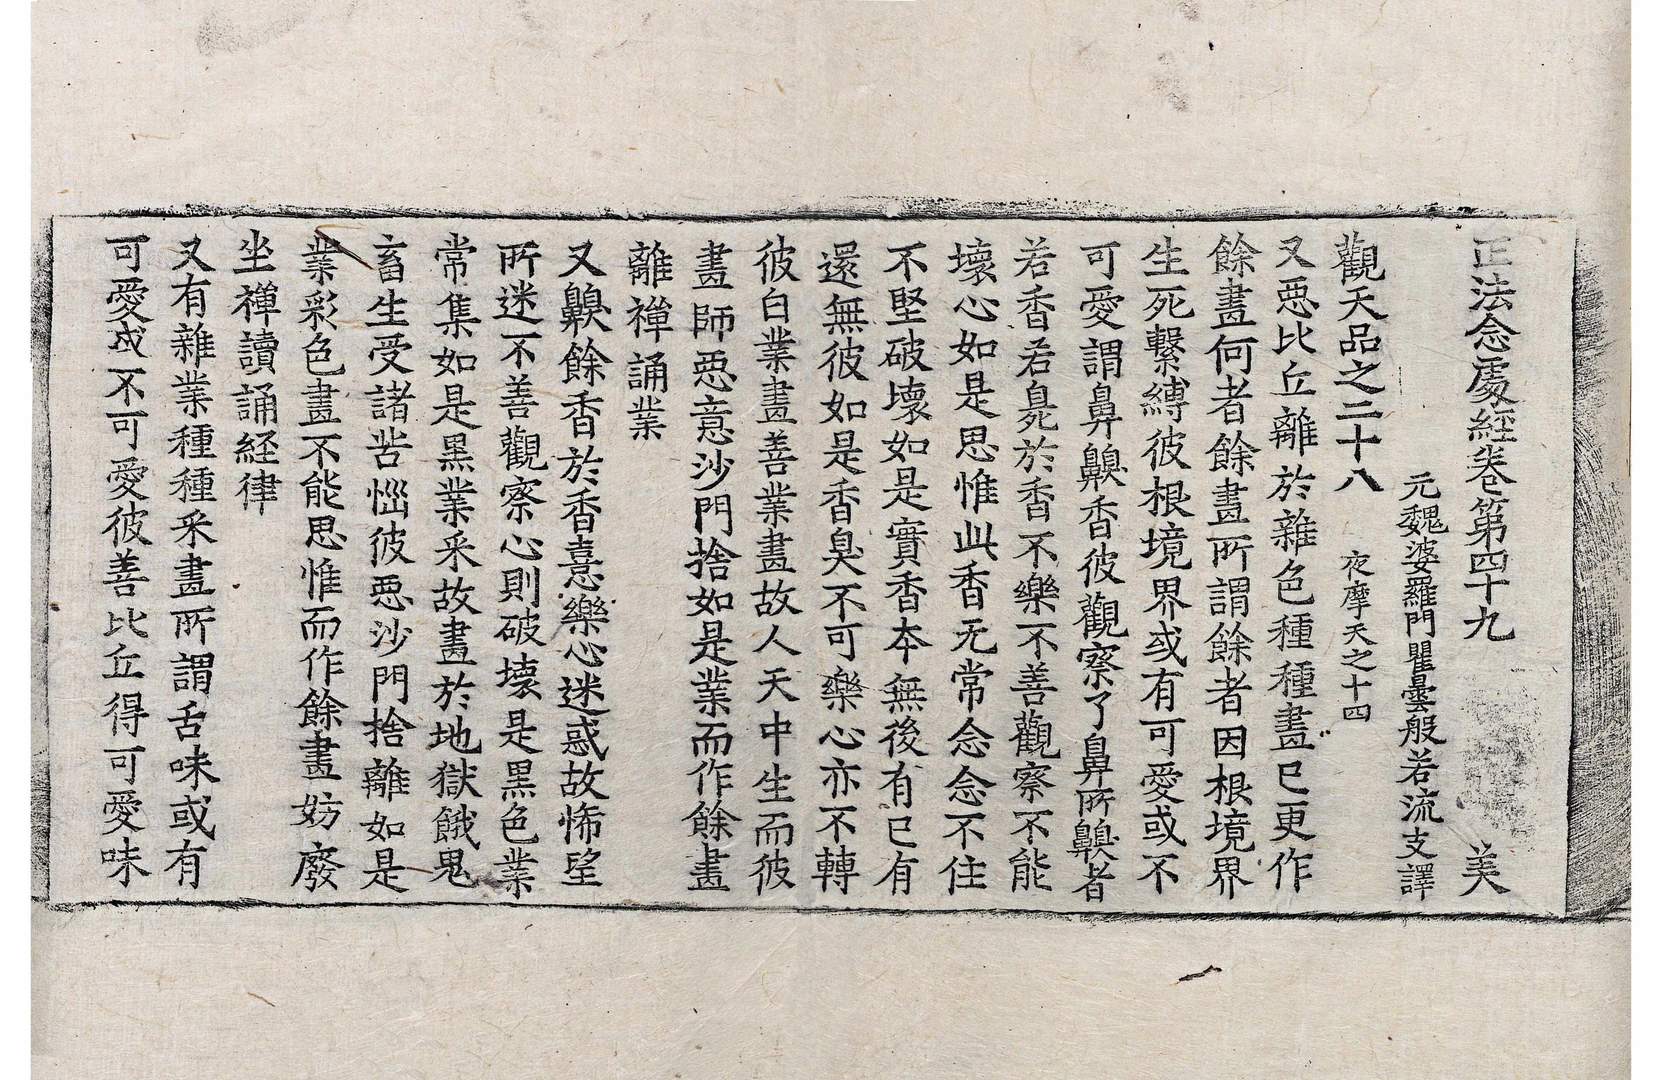 正法念處經卷第四十九　美
元魏婆羅門瞿曇般若流支譯
觀天品之二十八　夜摩天之十四
又惡比丘離於雜色種種畫已更作
餘畫何者餘畫所謂餘者因根境界
生死繫縛彼根境界或有可愛或不
可愛謂鼻齅香彼觀察了鼻所齅者
若香若臰於香不樂不善觀察不能
壞心如是思惟此香无常念念不住
不堅破壞如是實香本無後有已有
還無彼如是香臭不可樂心亦不轉
彼白業畫善業畫故人天中生而彼
畫師惡意沙門捨如是業而作餘畫
離禪誦業
又齅餘香於香憙樂心迷惑故悕望
所迷不善觀察心則破壞是黑色業
常集如是黑業釆故畫於地獄餓鬼
畜生受諸苦惱彼惡沙門捨離如是
業彩色畫不能思惟而作餘畫妨廢
坐禪讀誦経律
又有雜業種種釆畫所謂舌味或有
可愛或不可愛彼善比丘得可愛味